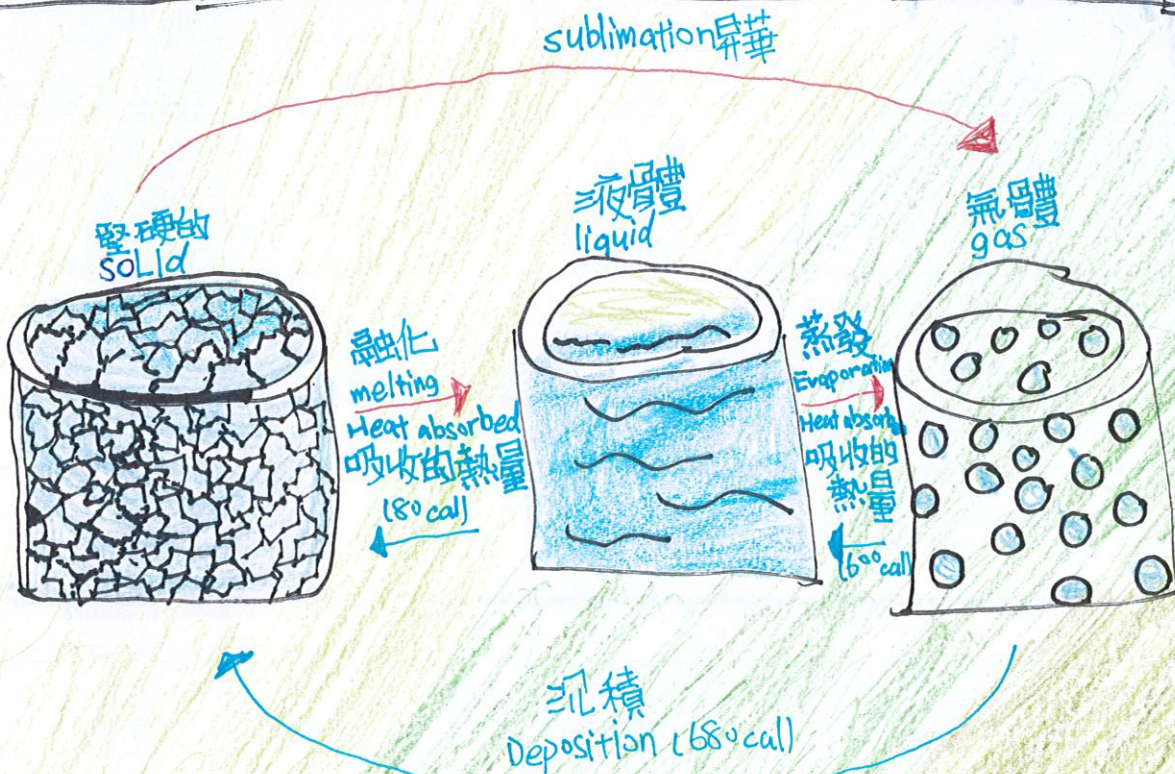 sublimation昇華
堅硬的
SOLId
液體
liquid
氣體
gas
融化
melting
Heat absorbed
吸收的熱量
(80 call)
蒸發
Evaporation
Heat absorb
吸收的
熱量
(600 call)
沉積
Deposition (680 call)